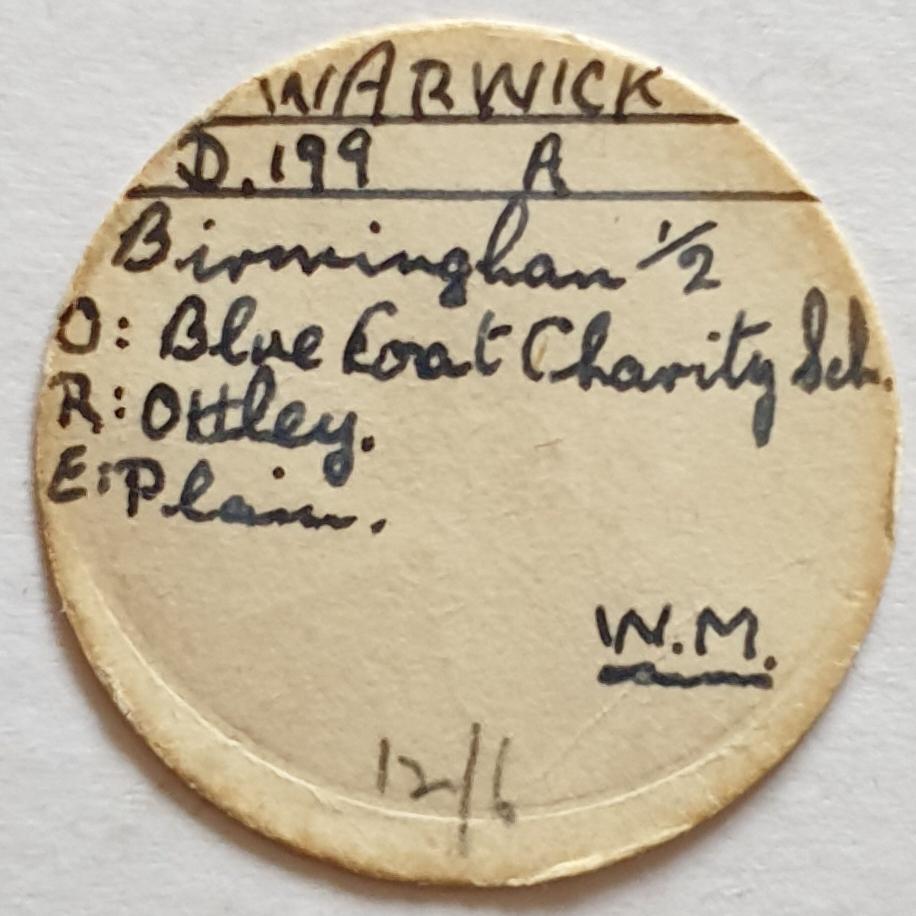 WARWICK
D.199 A
Birmingham 1/2
O: Blue Coat Charity Sch.
R: Ottley.
E: Plain.
W.M.
12/6